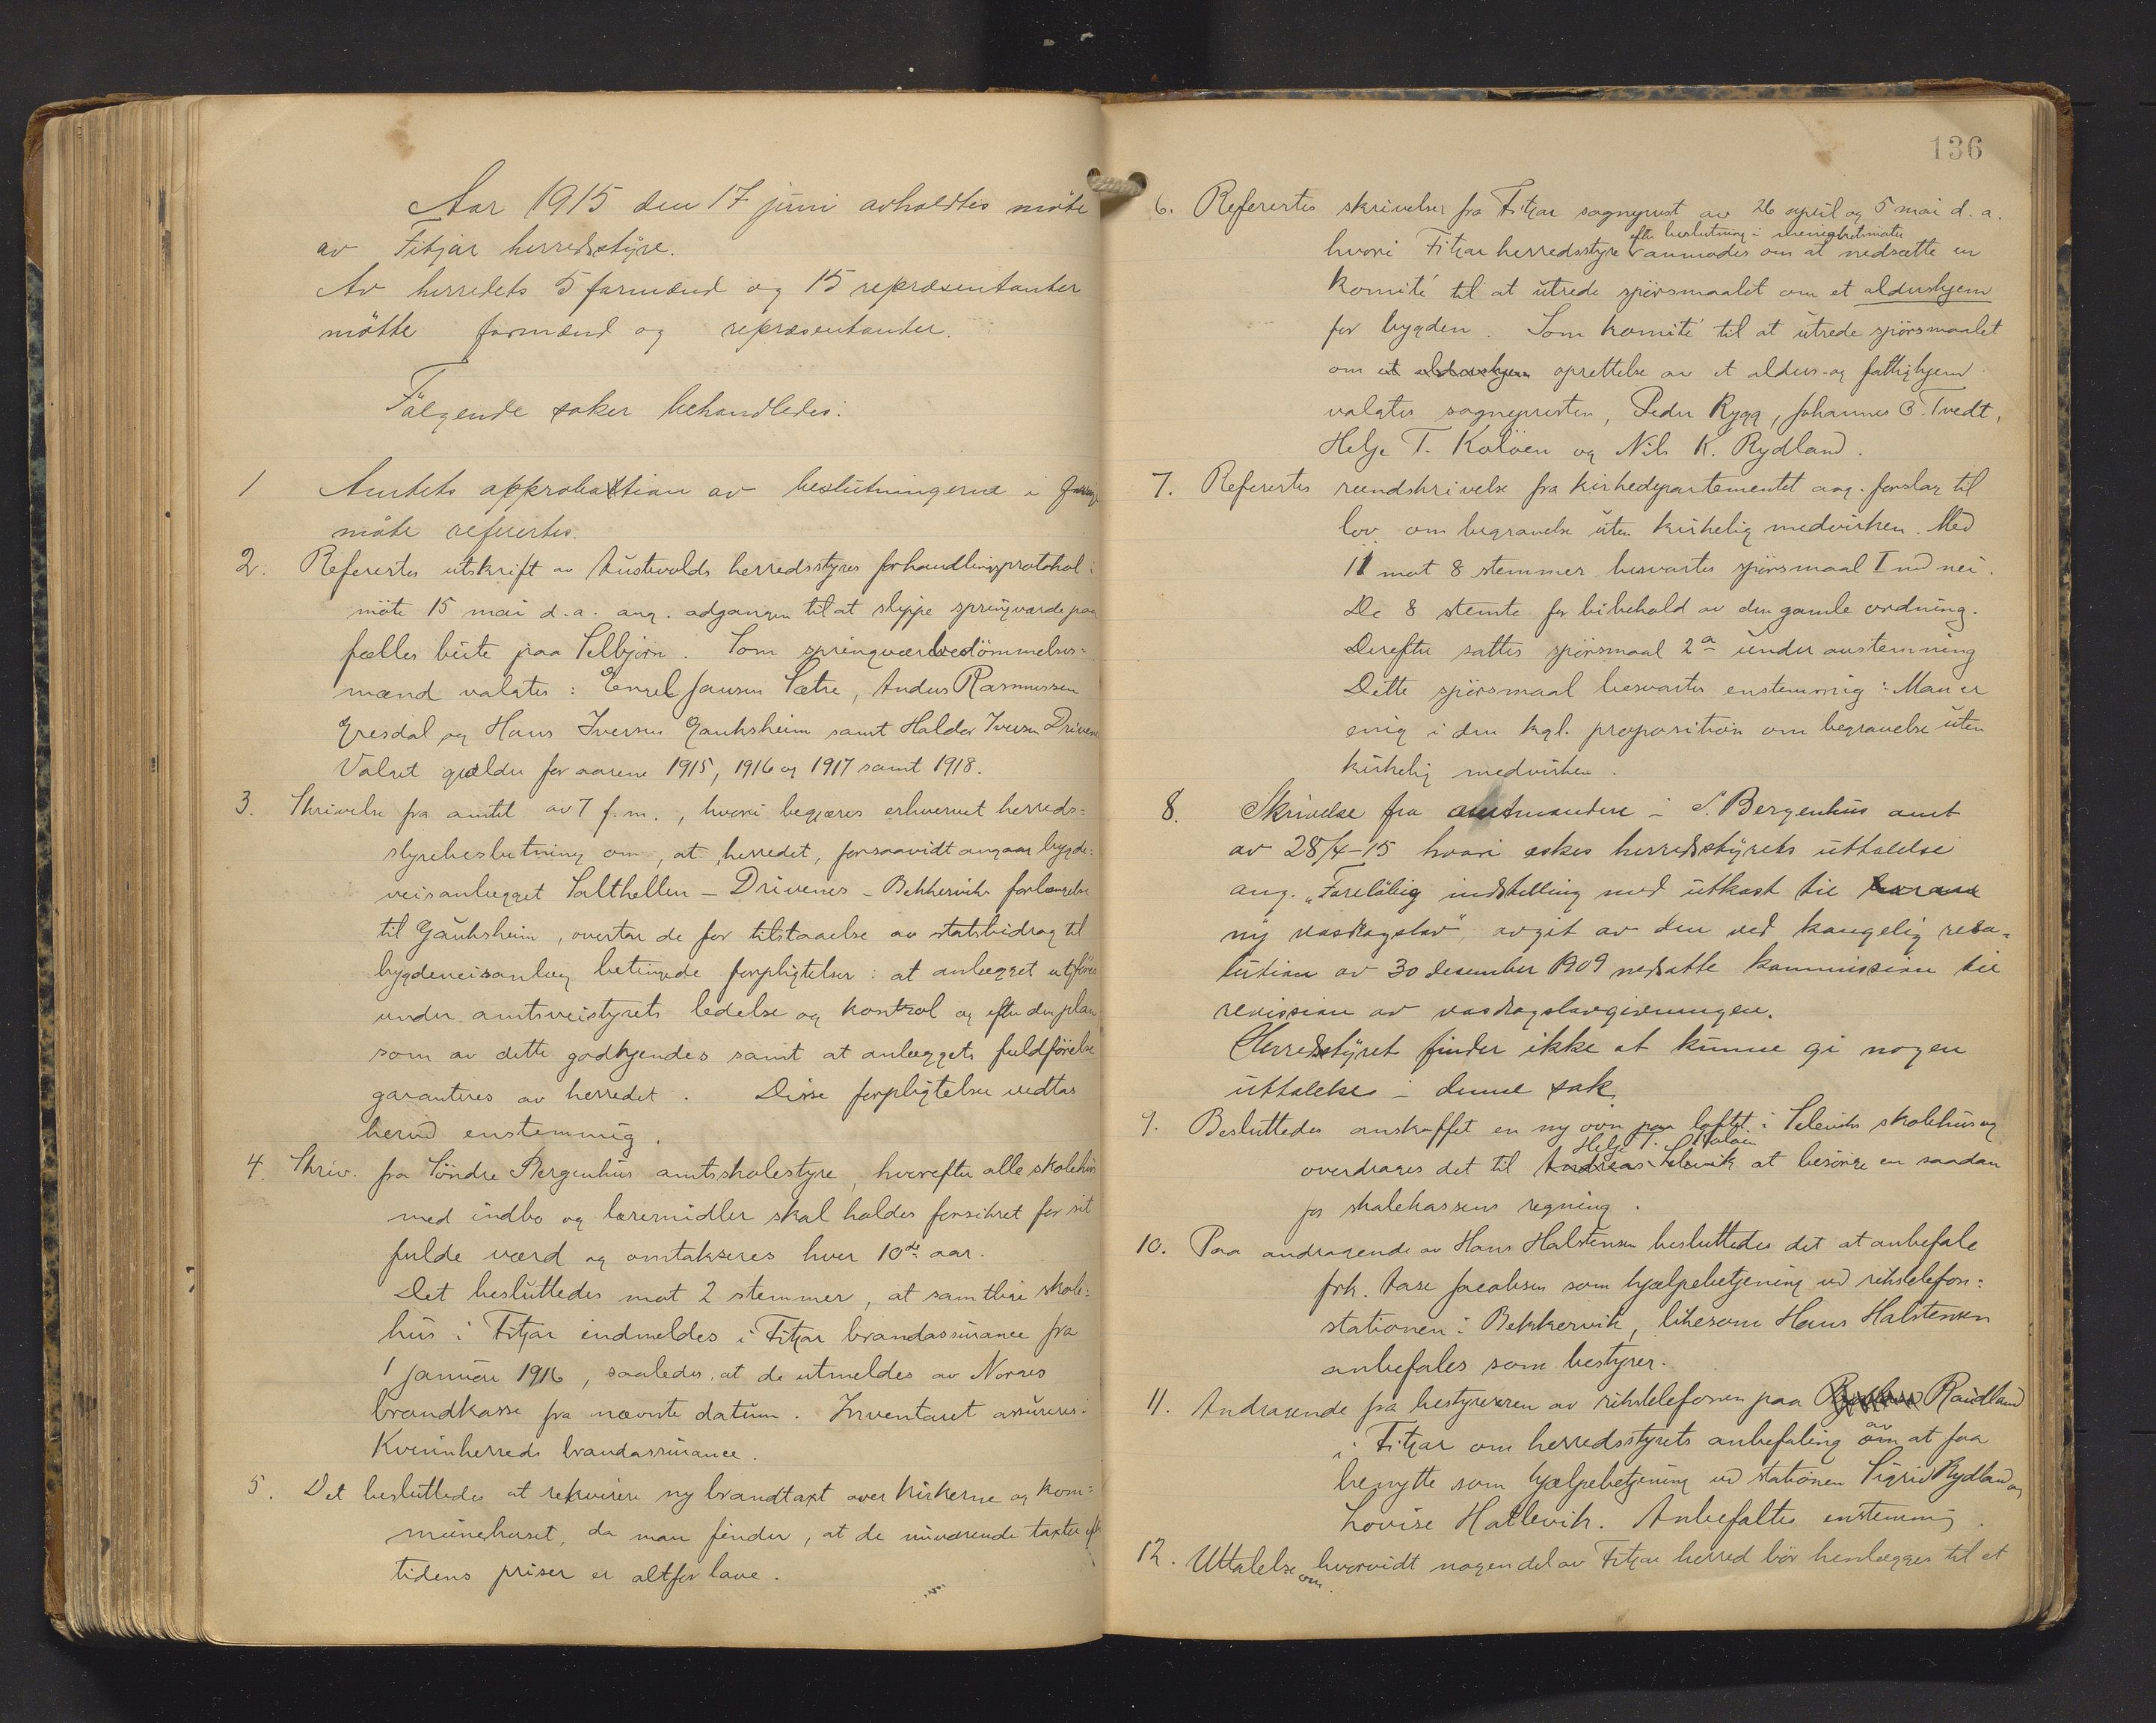 Aar 1915 den 17 juni avholdtes möte
av Fitjar herredsstyre.
Av herredets 5 formænd og 15 repræsentanter
mötte formænd og repræsentanter.
Fölgende saker behandledes:
1 Amtets approbation av beslutningerne i forrige
möte refertes.
2. Refertes utskrift av Austevolds herredsstyres forhandlingsprotokol i
möte 15 mai d.a. ang. adgangen til at slippe springværde paa
fælles beite paa Selbjörn. Som springværbedömmelses=
mænd valgtes: Engel Jansen Sætre, Anders Rasmussen
Gresdal og Hans Iversen Gauksheim samt Haldor Iversen Drivenes
Valget gjælder for aarene 1915, 1916 og 1917 samt 1918.
3. Skrivelse fra amtet av 7 f.m., hvori begjæres erhvervet herreds=
styrebeslutning om, at herredet, forsaavidt angaar bygde=
veisanlægget Salthellen – Drivenes – Bekkervik forlængelse
til Gauksheim, overtar de for tilstaaelse av statsbidrag til
bygdeveisanlæg betingede forpligtelser: at anlægget utföres
under amtsveistyrets ledelse og kontrol og efter den plan
som av dette godkjendes samt at anlæggets fuldförelse
garanteres av herredet. Disse forpligtelser vedtas
herved enstemmig.
4. Skriv. fra Söndre Bergenhus amtsskolestyre, hvorefter alle skolehus
med indbo og læremidler skal holdes forsikret for sit
fulde værd og omtakseres hver 10de aar.
Det besluttedes mot 2 stemmer, at samtlige skole=
hus i Fitjar indmeldes i Fitjar brandassurance fra
1 januar 1916, saaledes, at de utmeldes av Norges
brandkasse fra nævnte datum. Inventaret assureres i
Kvinnherreds brandassurance.
5. Det besluttedes at rekvirere ny brandtaxt over kirkerne og kom=
munehuset, da man finder, at de nuværende taxter efter
tidens priser er altfor lave.
136
6. Refertes skrivelser fra Fitjar sogneprest av 26 april og 5 mai d.a.
efter beslutning i menighetsmöte
hvori Fitjar herredsstyre anmodes om at nedsætte en
komité til at utrede spörsmaalet om et aldershjem
for bygden. Som komité til at utrede spörsmaalet
om et aldershjem oprettelse av et alders- og fattighjem
valgtes sognepresten, Peder Rygg, Johannes O. Tvedt,
Helge T. Kalöen og Nils K. Rydland.
7. Refertes rundskrivelse fra kirkedepartementet ang. forslag til
lov om begravelse uten kirkelig medvirken. Med
11 mot 8 stemmer besvartes spörsmaal I med nei.
De 8 stemte for bibehold av den gamle ordning.
Derefter sattes spörsmaal 2a under avstemning
Dette spörsmaal besvartes enstemmig: Man er
enig i den kgl. proposition om begravelse uten
kirkelig medvirken.
8. Skrivelse fra amtmanden i S. Bergenhus amt
av 28/4-15 hvori æskes herredsstyrets uttalelse
ang. "Forelöbig indstilling med utkast til
ny vasdragslov", avgit av den ved kongelig reso=
lution av 30 desember 1909 nedsatte kommission til
revission av vasdragslovgivningen.
Herredsstyret finder ikke at kunne gi nogen
uttalelse i denne sak.
9. Besluttedes anskaffet en ny ovn paa loftet i Selevik skolehus og
Helge T. Kalöen
overdrages det til Andreas Selevik at besörge en saadan
for skolekassens regning.
10. Paa andragende av Hans Halstensen besluttedes det at anbefale
frk. Aase Jacobsen som hjælpebetjening ved rikstelefon=
stationen i Bekkervik, likesom Hans Halstensen
anbefales som bestyrer.
11. Andragende fra bestyreren av rikstelefonen paa Raudland
av
i Fitjar om herredsstyrets anbefaling om at faa
benytte som hjælpebetjening ved stationen Sigrid Rydland og
Lovise Hatlevik. Anbefaltes enstemmig.
12. Uttalelse om hvorvidt nogen del av Fitjar herred bör henlægges til et